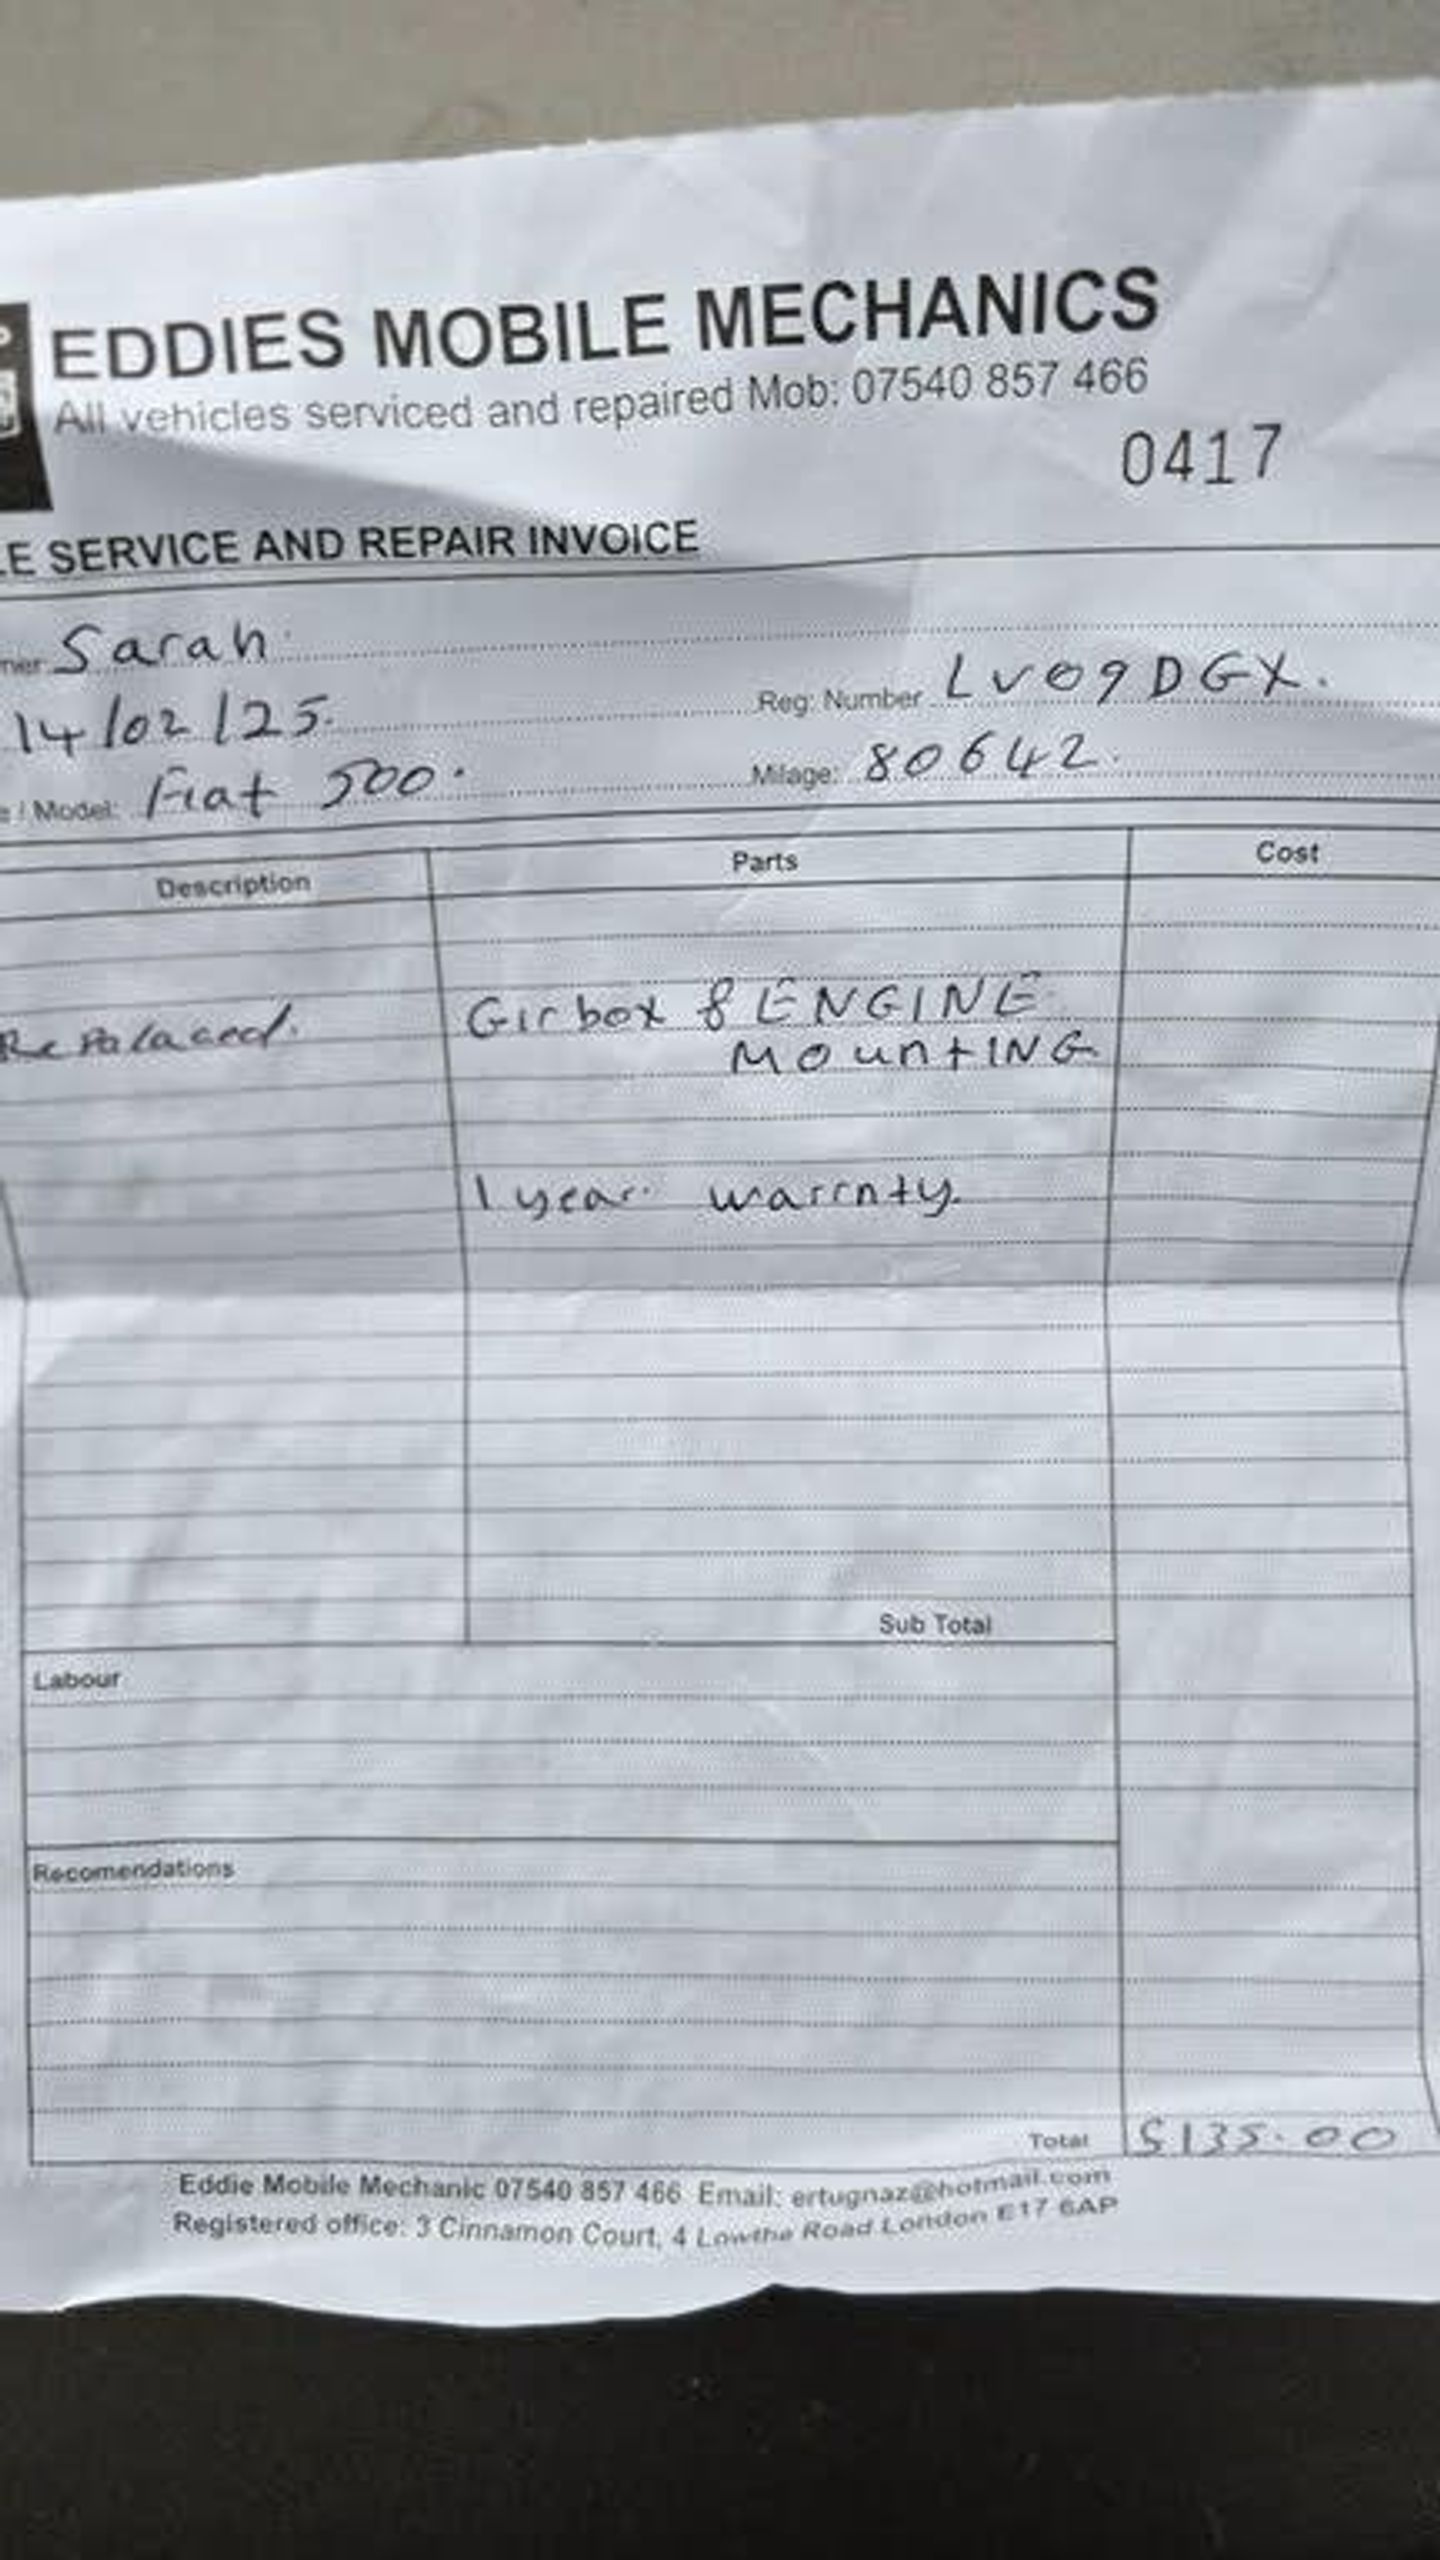 EDDIES MOBILE MECHANICS
All vehicles serviced and repaired Mob: 07540 857 466
0417
LE SERVICE AND REPAIR INVOICE
mer Sarah
14/02/25.
Reg: Number LV09DGX.
e / Model: Fiat 500.
Milage: 80642.
Description
Parts
Cost
Repalaced.
Girbox & ENGINE
MOuntING
1 year warrnty.
Sub Total
Labour
Recomendations
Total
135.00
Eddie Mobile Mechanic 07540 857 466 Email: ertugnaz@hotmail.com
Registered office: 3 Cinnamon Court, 4 Lowthe Road London E17 6AP